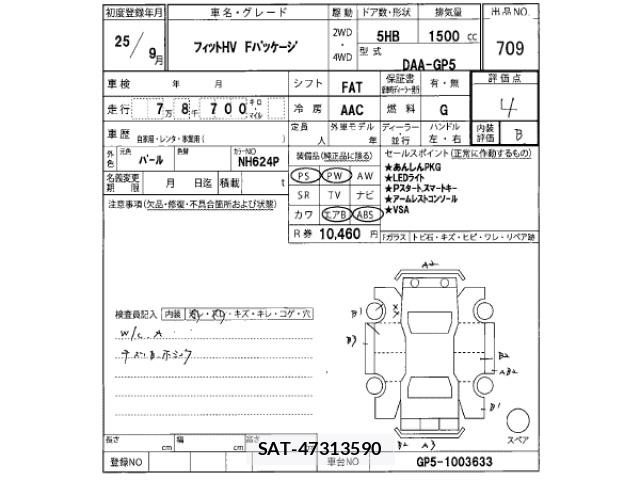 初度登録年月 車名・グレード 駆動 ドア数・形状 排気量 出品NO.
25/9月 フィットHV Fパッケージ 2WD・4WD 5HB 1500 cc 709
型式 DAA-GP5
車検 年 月 シフト FAT 保証書 有・無 評価点 4
走行 7万8千700 キロ・マイル 冷房 AAC 燃料 G
車歴 自家用・レンタ・事業用( ) 定員 人 外車モデル 年 ディーラー・並行 ハンドル 左・右 内装評価 B
外色 元色 パール 色替 カラーNO NH624P
装備品(純正品に限る) セールスポイント(正常に作動するもの)
名義変更期限 月 日迄 積載 t
PS PW AW
SR TV ナビ
カワ エアB ABS
R券 10,460 円
★あんしんPKG
★LEDライト
★Pスタート,スマートキー
★アームレストコンソール
★VSA
Fガラス トビ石・キズ・ヒビ・ワレ・リペア跡
注意事項(欠品・修復・不具合箇所および状態)
A2
B1
B3
検査員記入 内装 汚レ・スレ・キズ・キレ・コゲ・穴
W/C.A
AB2
B1
B2 A3
スペア
長さ cm 幅 cm 高さ cm
SAT-47313590
登録NO 車台NO GP5-1003633